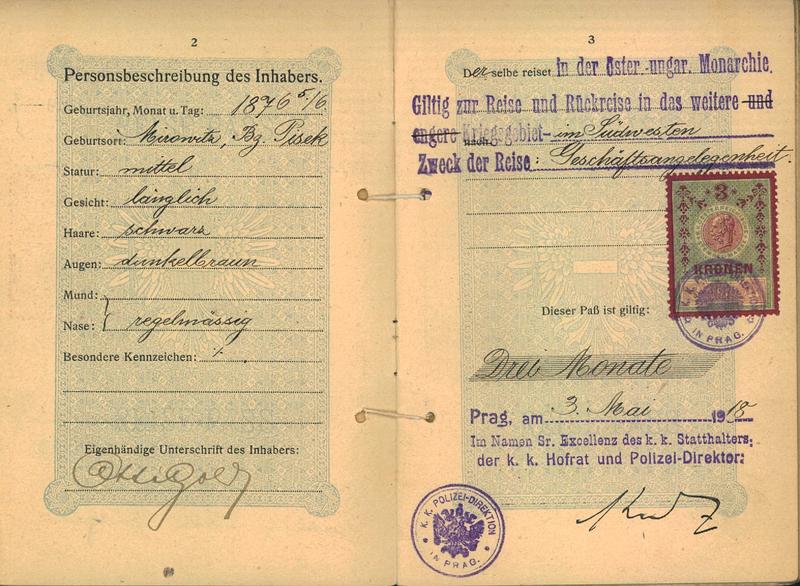 2
Personsbeschreibung des Inhabers.
Geburtsjahr, Monat u. Tag: 1876 5/6
Geburtsort: Mirowitz, Bz. Pisek
Statur: mittel
Gesicht: länglich
Haare: schwarz
Augen: dunkelbraun
Mund:
Nase: regelmässig
Besondere Kennzeichen: ./.
Eigenhändige Unterschrift des Inhabers:
Otto
3
Derselbe reiset in der öster.-ungar. Monarchie.
Giltig zur Reise und Rückreise in das weitere und
engere Kriegsgebiet im Südwesten
nach
Zweck der Reise: Geschäftsangelegenheit.
3
KRONEN
K. K. POLIZEI-DIREKTION
IN PRAG.
Dieser Paß ist giltig:
Drei Monate
Prag, am 3. Mai 1918
Im Namen Sr. Excellenz des k. k. Statthalters:
der k. k. Hofrat und Polizei-Direktor:
K. K. POLIZEI-DIREKTION
IN PRAG.